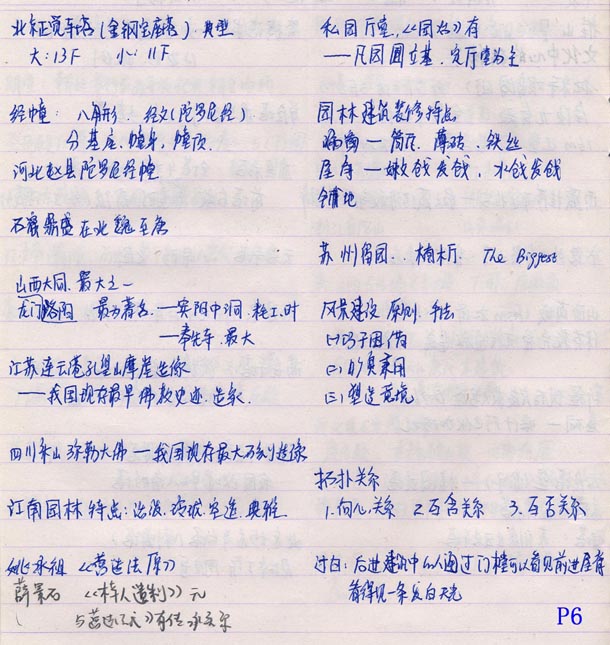 北京正觉寺塔(金钢宝座塔)典型
大:13F 小:11F
经幢: 八角形. 经文(陀罗尼经)
分基座、幢身、幢顶.
河北赵县陀罗尼经幢
石窟鼎盛在北魏至唐
山西大同. 最大之一
龙门洛阳 最为著名.—宾阳中洞.耗工、时
—奉先寺.最大
江苏连云港孔望山摩崖造像
——我国现存最早佛教史迹.造象.
四川乐山弥勒大佛—我国现存最大石刻造像
江南园林特点:淡泊、玲珑.空透、典雅
姚承祖《营造法原》
薛景石 《梓人遗制》元
与营造法式有传承关系
私园厅堂,《园冶》有
——凡园圃立基,定厅堂为主
园林建筑装修特点
—筒瓦、薄砖、铁丝
屋角—嫩戗发戗,水戗发戗
铺地
苏州留园.. 楠木厅. The Biggest
风景建设原则.手法
(一)巧于因借
(二)兼用
(三)塑造意境
拓扑关系
1.向心关系 2.互含关系 3.互否关系
过白:后进建筑中的人通过门樘可以看见前进屋脊
看得见一条发白天光
P6